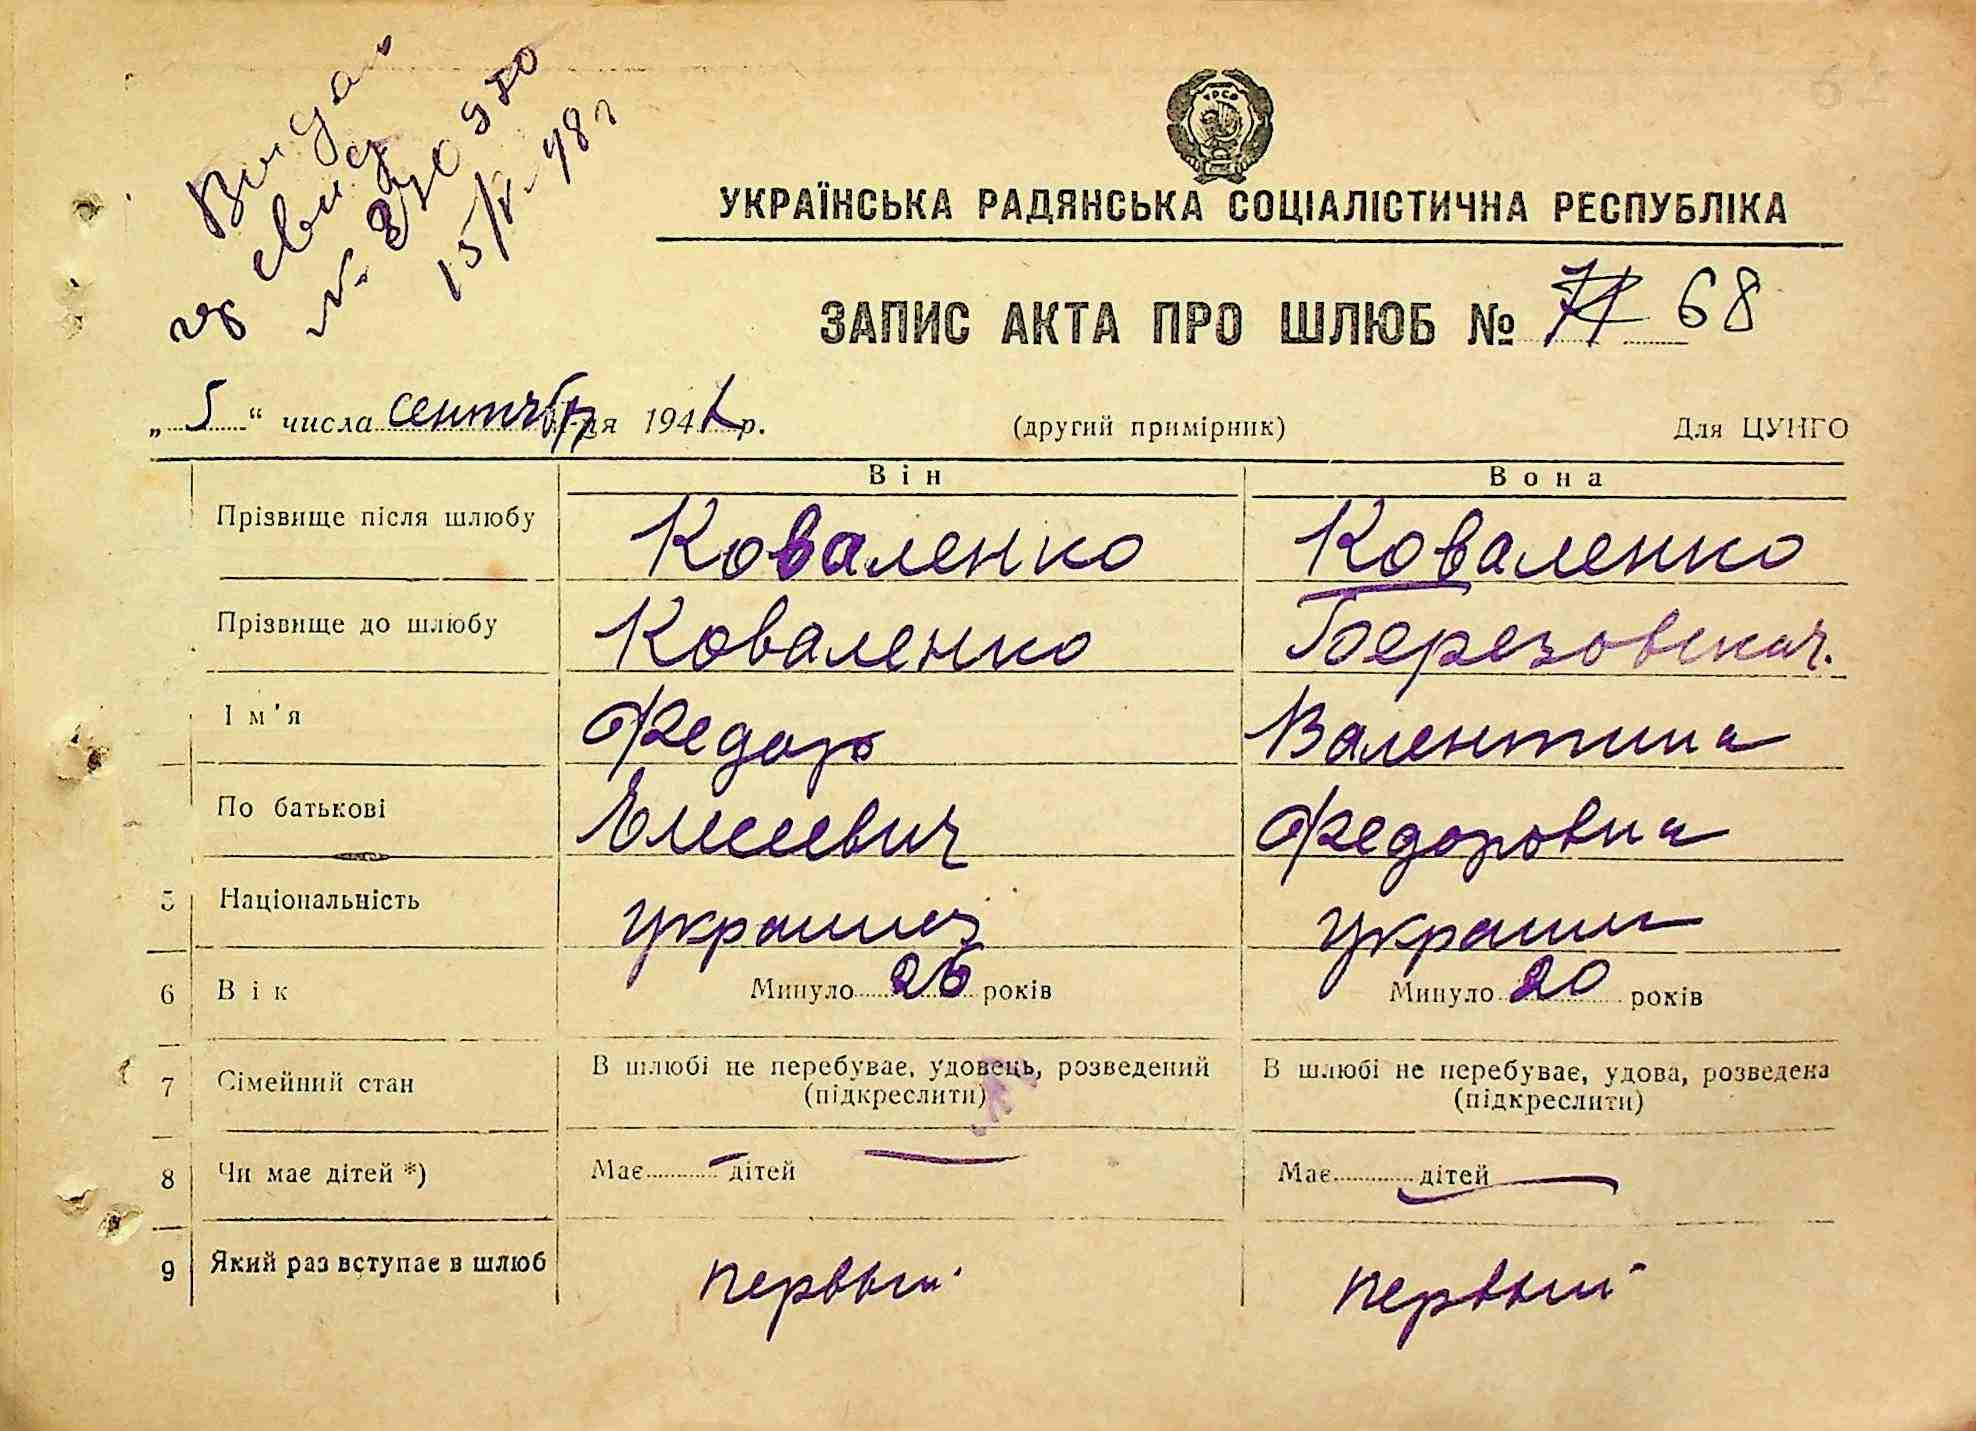 Видано
№ 270950
15/V-48 г
УКРАЇНСЬКА РАДЯНСЬКА СОЦІАЛІСТИЧНА РЕСПУБЛІКА
ЗАПИС АКТА ПРО ШЛЮБ № 71 68
„ 5 “ числа сентября 194 р. (другий примірник) Для ЦУНГО
Він Вона
Прізвище після шлюбу Коваленко Коваленко
Прізвище до шлюбу Коваленко Березовская.
Ім'я Федор Валентина
По батькові Елисеевич Федоровна
5 Національність украинец украин
6 Вік Минуло 26 років Минуло 20 років
7 Сімейний стан В шлюбі не перебуває, удовець, розведений В шлюбі не перебуває, удова, розведена
(підкреслити) (підкреслити)
8 Чи має дітей *) Має — дітей Має — дітей
9 Який раз вступає в шлюб первый первый